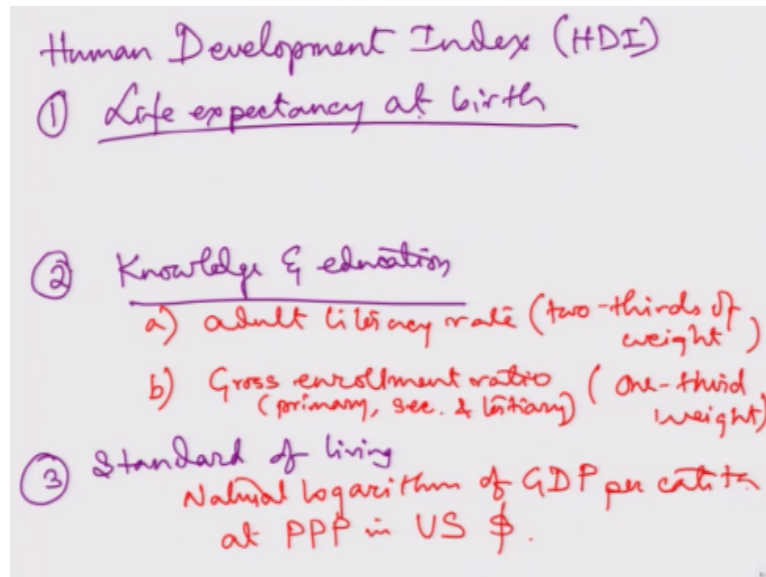 Human Development Index (HDI)
① Life expectancy at birth
② Knowledge & education
a) adult literacy rate (two-thirds of weight)
b) Gross enrollment ratio (one-third weight)
(primary, sec. & tertiary)
③ Standard of living
Natural logarithm of GDP per capita
at PPP in US $.